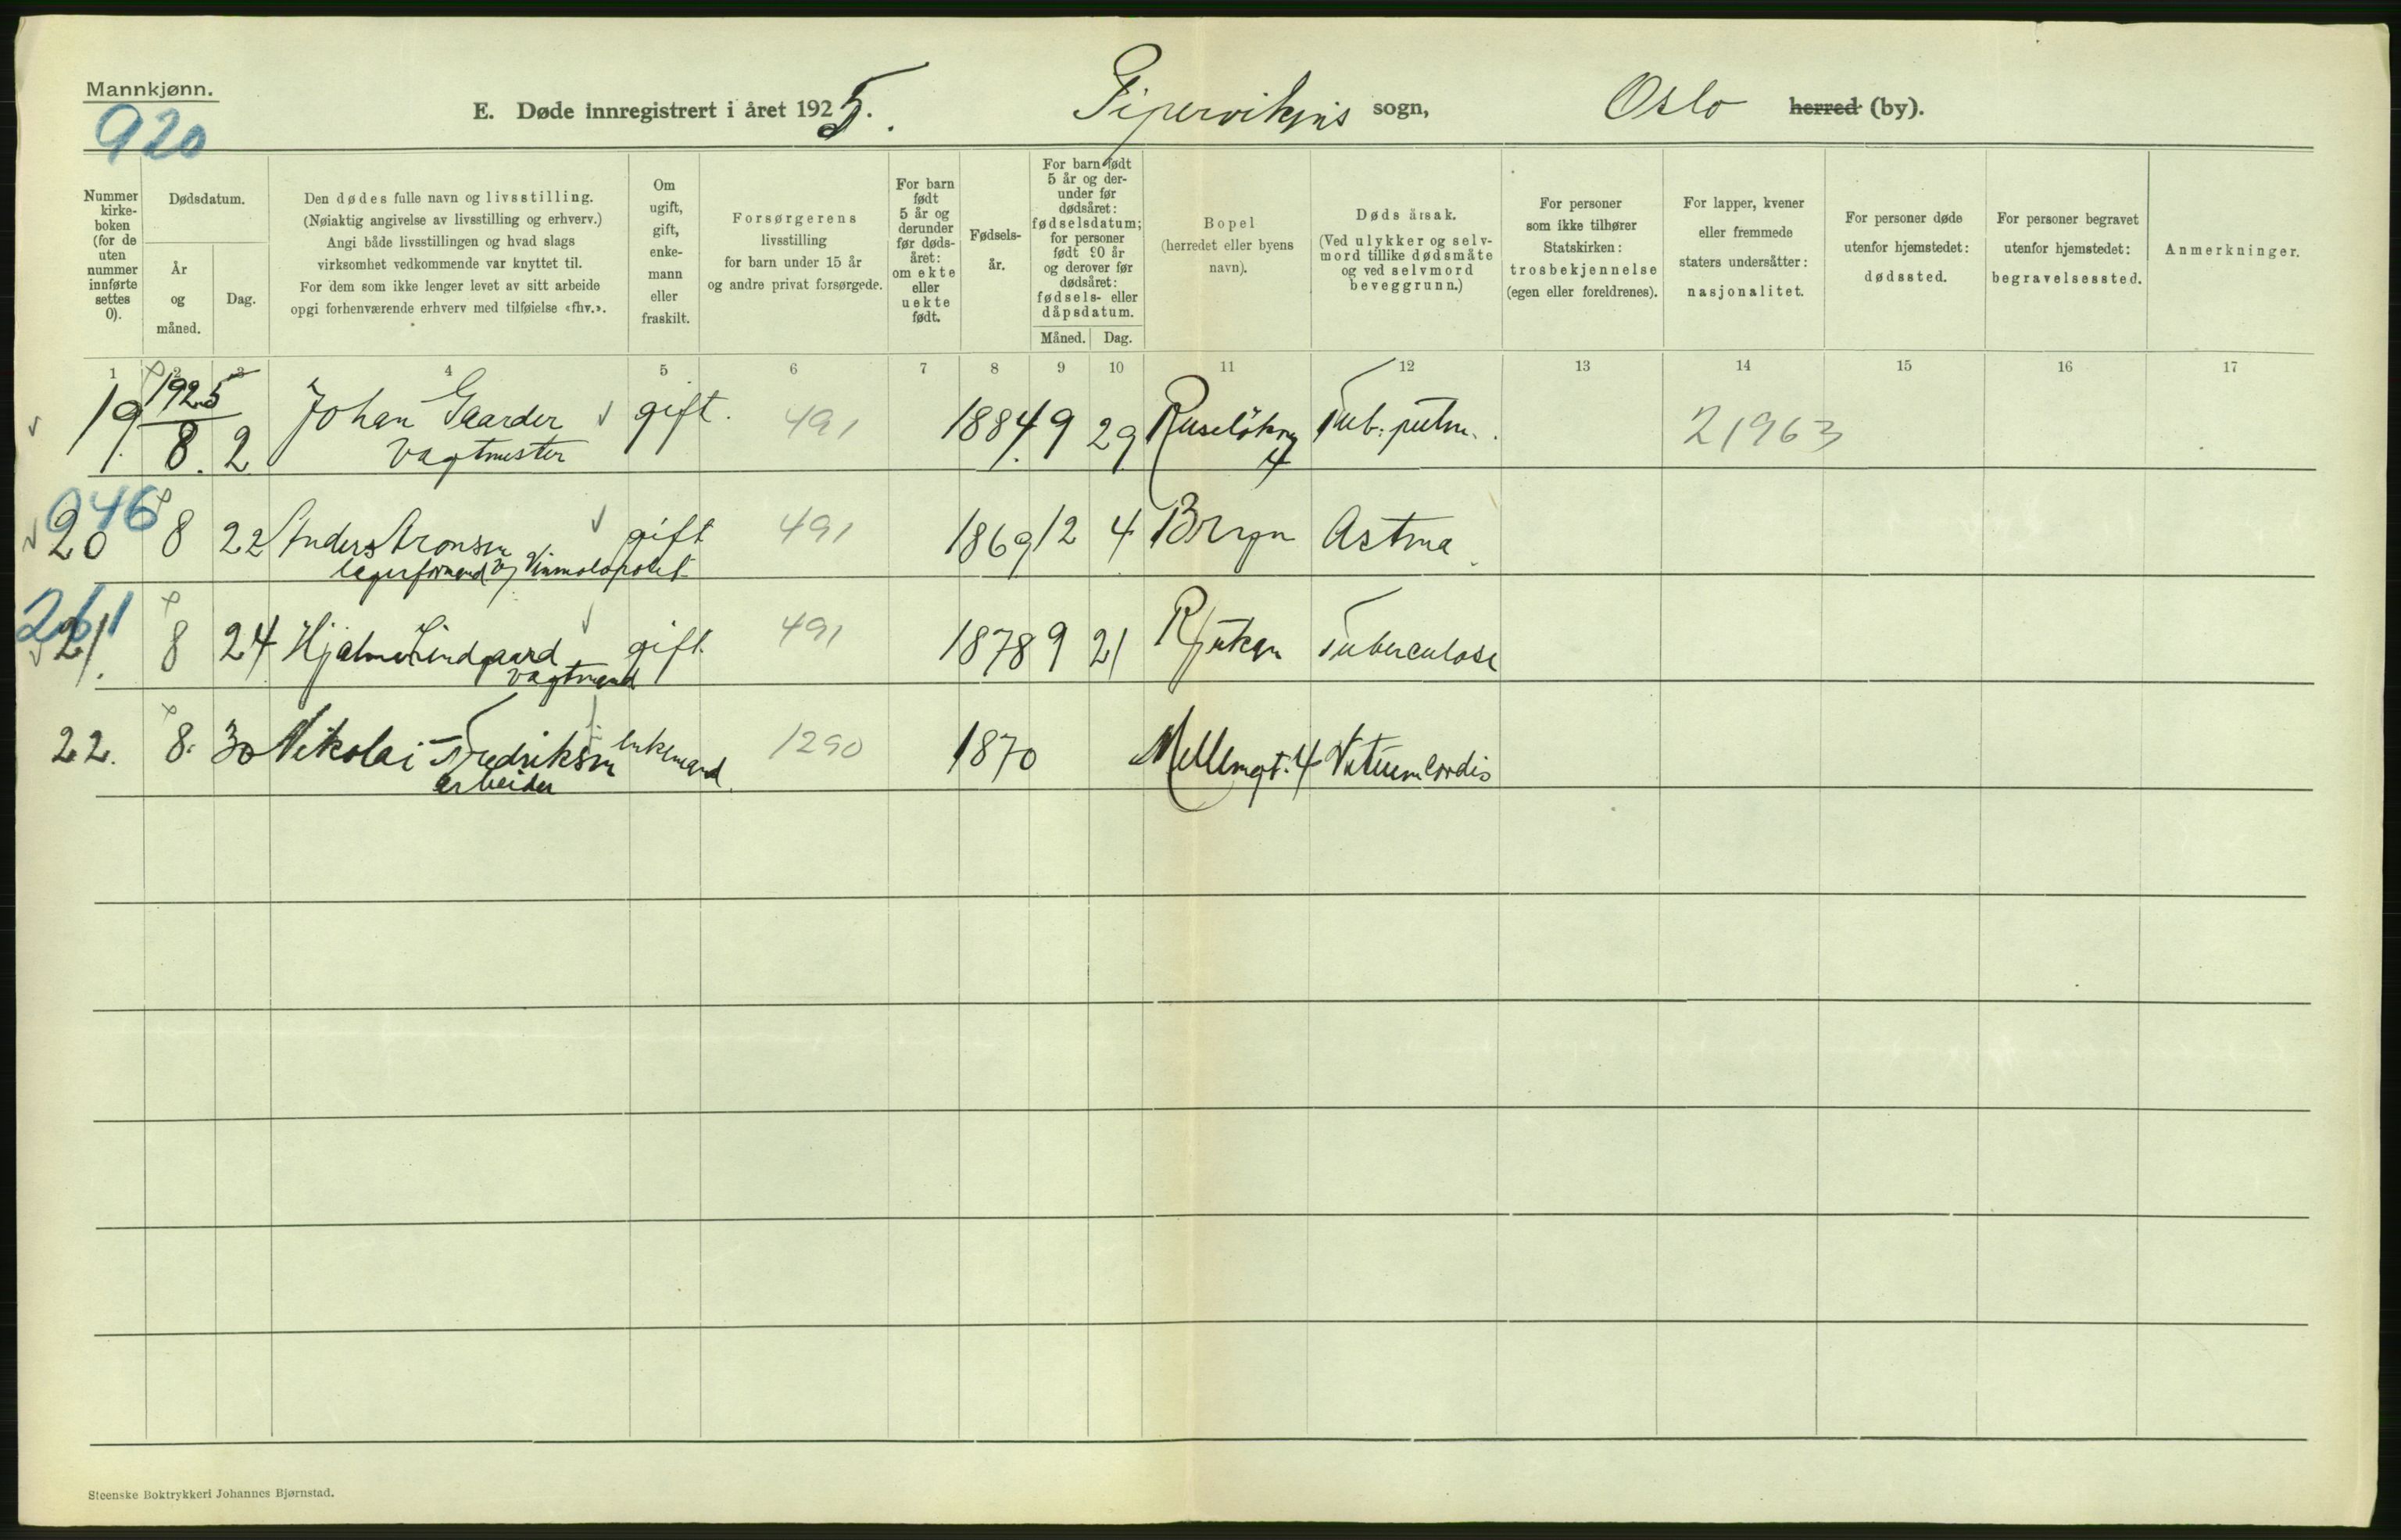 Mannkjønn.
920
E. Døde innregistrert i året 1925.
Pipervikens sogn,
Oslo herred (by).
Nummer
kirke-
boken
(for de
uten
nummer
innførte
settes
0).
Dødsdatum.
År
og
måned.
Dag.
Den dødes fulle navn og livsstilling.
(Nøiaktig angivelse av livsstilling og erhverv.)
Angi både livsstillingen og hvad slags
virksomhet vedkommende var knyttet til.
For dem som ikke lenger levet av sitt arbeide
opgi forhenværende erhverv med tilføielse «fhv.».
Om
ugift,
gift,
enke-
mann
eller
fraskilt.
Forsørgerens
livsstilling
for barn under 15 år
og andre privat forsørgede.
For barn
født
5 år og
derunder
før døds-
året:
om ekte
eller
uekte
født.
Fødsels-
år.
For barn født
5 år og der-
under før
dødsåret:
fødselsdatum;
for personer
født 90 år
og derover før
dødsåret:
fødsels- eller
dåpsdatum.
Måned. Dag.
Bopel
(herredet eller byens
navn).
Dødsårsak.
(Ved ulykker og selv-
mord tillike dødsmåte
og ved selvmord
beveggrunn.)
For personer
som ikke tilhører
Statskirken:
trosbekjennelse
(egen eller foreldrenes).
For lapper, kvener
eller fremmede
staters undersåtter:
nasjonalitet.
For personer døde
utenfor hjemstedet:
dødssted.
For personer begravet
utenfor hjemstedet:
begravelsessted.
Anmerkninger.
1 2 3 4 5 6 7 8 9 10 11 12 13 14 15 16 17
1925
19 8. 2 Johan Gaarder gift. 491 1884 9 29 Tub. pulm. 21963
Vagtmester 4
946
20 8 22 Anders Aronsen gift 491 1869 12 4 Bryn Astma
lagerformand Vinmonopolet
261
21. 8 24 Hjalmar Lindgaard gift 491 1878 9 21 Rjukan Tuberculose
Vagtmand
22. 8. 30 Nikolai Fredriksen enkemand 1290 1870 Mellemgt. 4 Vitium cordis
arbeider
Steenske Boktrykkeri Johannes Bjørnstad.